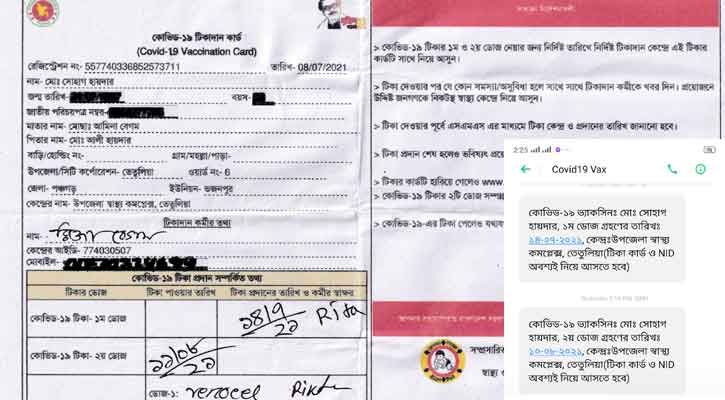 কোভিড-১৯ টিকাদান কার্ড
(Covid-19 Vaccination Card)
রেজিস্ট্রেশন নং- 557740336852573711
তারিখ- 08/07/2021
নাম- মোঃ সোহাগ হায়দার
জন্ম তারিখ-
বয়স-
জাতীয় পরিচয়পত্র নম্বর-
মাতার নাম- মোছাঃ আমিনা বেগম
পিতার নাম- মোঃ আলী হায়দার
বাড়ি/হোল্ডিং নং-
গ্রাম/মহল্লা/পাড়া-
উপজেলা/সিটি কর্পোরেশন- তেতুলিয়া
ওয়ার্ড নং- 6
জেলা- পঞ্চগড়
ইউনিয়ন- ভজনপুর
কেন্দ্রের নাম- উপজেলা স্বাস্থ্য কমপ্লেক্স, তেতুলিয়া
টিকাদান কর্মীর তথ্য
নাম-
কেন্দ্রের আইডি- 774030507
মোবাইল-
কোভিড-১৯ টিকা প্রদান সম্পর্কিত তথ্য
টিকার ডোজ
টিকা পাওয়ার তারিখ
টিকা প্রদানের তারিখ ও কর্মীর স্বাক্ষর
কোভিড-১৯ টিকা- ১ম ডোজ
১৪/৭/২১ Rita
কোভিড-১৯ টিকা- ২য় ডোজ
১১/০৮/২১
ডোজ-১: verocel
> কোভিড-১৯ টিকার ১ম ও ২য় ডোজ নেয়ার জন্য নির্দিষ্ট তারিখে নির্দিষ্ট টিকাদান কেন্দ্রে এই টিকার
কার্ডটি সাথে নিয়ে আসুন।
> টিকা দেওয়ার পর যে কোন সমস্যা/অসুবিধা হলে সাথে সাথে টিকাদান কর্মীকে খবর দিন। প্রয়োজনে
উদ্দিষ্ট জনগণকে নিকটস্থ স্বাস্থ্য কেন্দ্রে নিয়ে আসুন।
> টিকা দেওয়ার পূর্বে এসএমএস এর মাধ্যমে টিকা কেন্দ্র ও প্রদানের তারিখ জানানো হবে।
> টিকা প্রদান শেষ হলেও ভবিষ্যৎ
> টিকার কার্ডটি হারিয়ে গেলেও www.
> কোভিড-১৯ টিকার ২টি ডোজ
> কোভিড-১৯-এর টিকা পেলেও
সম্প্রসারিত
স্বাস্থ্য
2:25
Covid19 Vax
কোভিড-১৯ ভ্যাকসিনঃ মোঃ সোহাগ
হায়দার, ১ম ডোজ গ্রহণের তারিখঃ
১৪-০৭-২০২১, কেন্দ্রঃউপজেলা স্বাস্থ্য
কমপ্লেক্স, তেতুলিয়া(টিকা কার্ড ও NID
অবশ্যই নিয়ে আসতে হবে)
কোভিড-১৯ ভ্যাকসিনঃ মোঃ সোহাগ
হায়দার, ২য় ডোজ গ্রহণের তারিখঃ
১০-০৮-২০২১, কেন্দ্রঃউপজেলা স্বাস্থ্য
কমপ্লেক্স, তেতুলিয়া(টিকা কার্ড ও NID
অবশ্যই নিয়ে আসতে হবে)